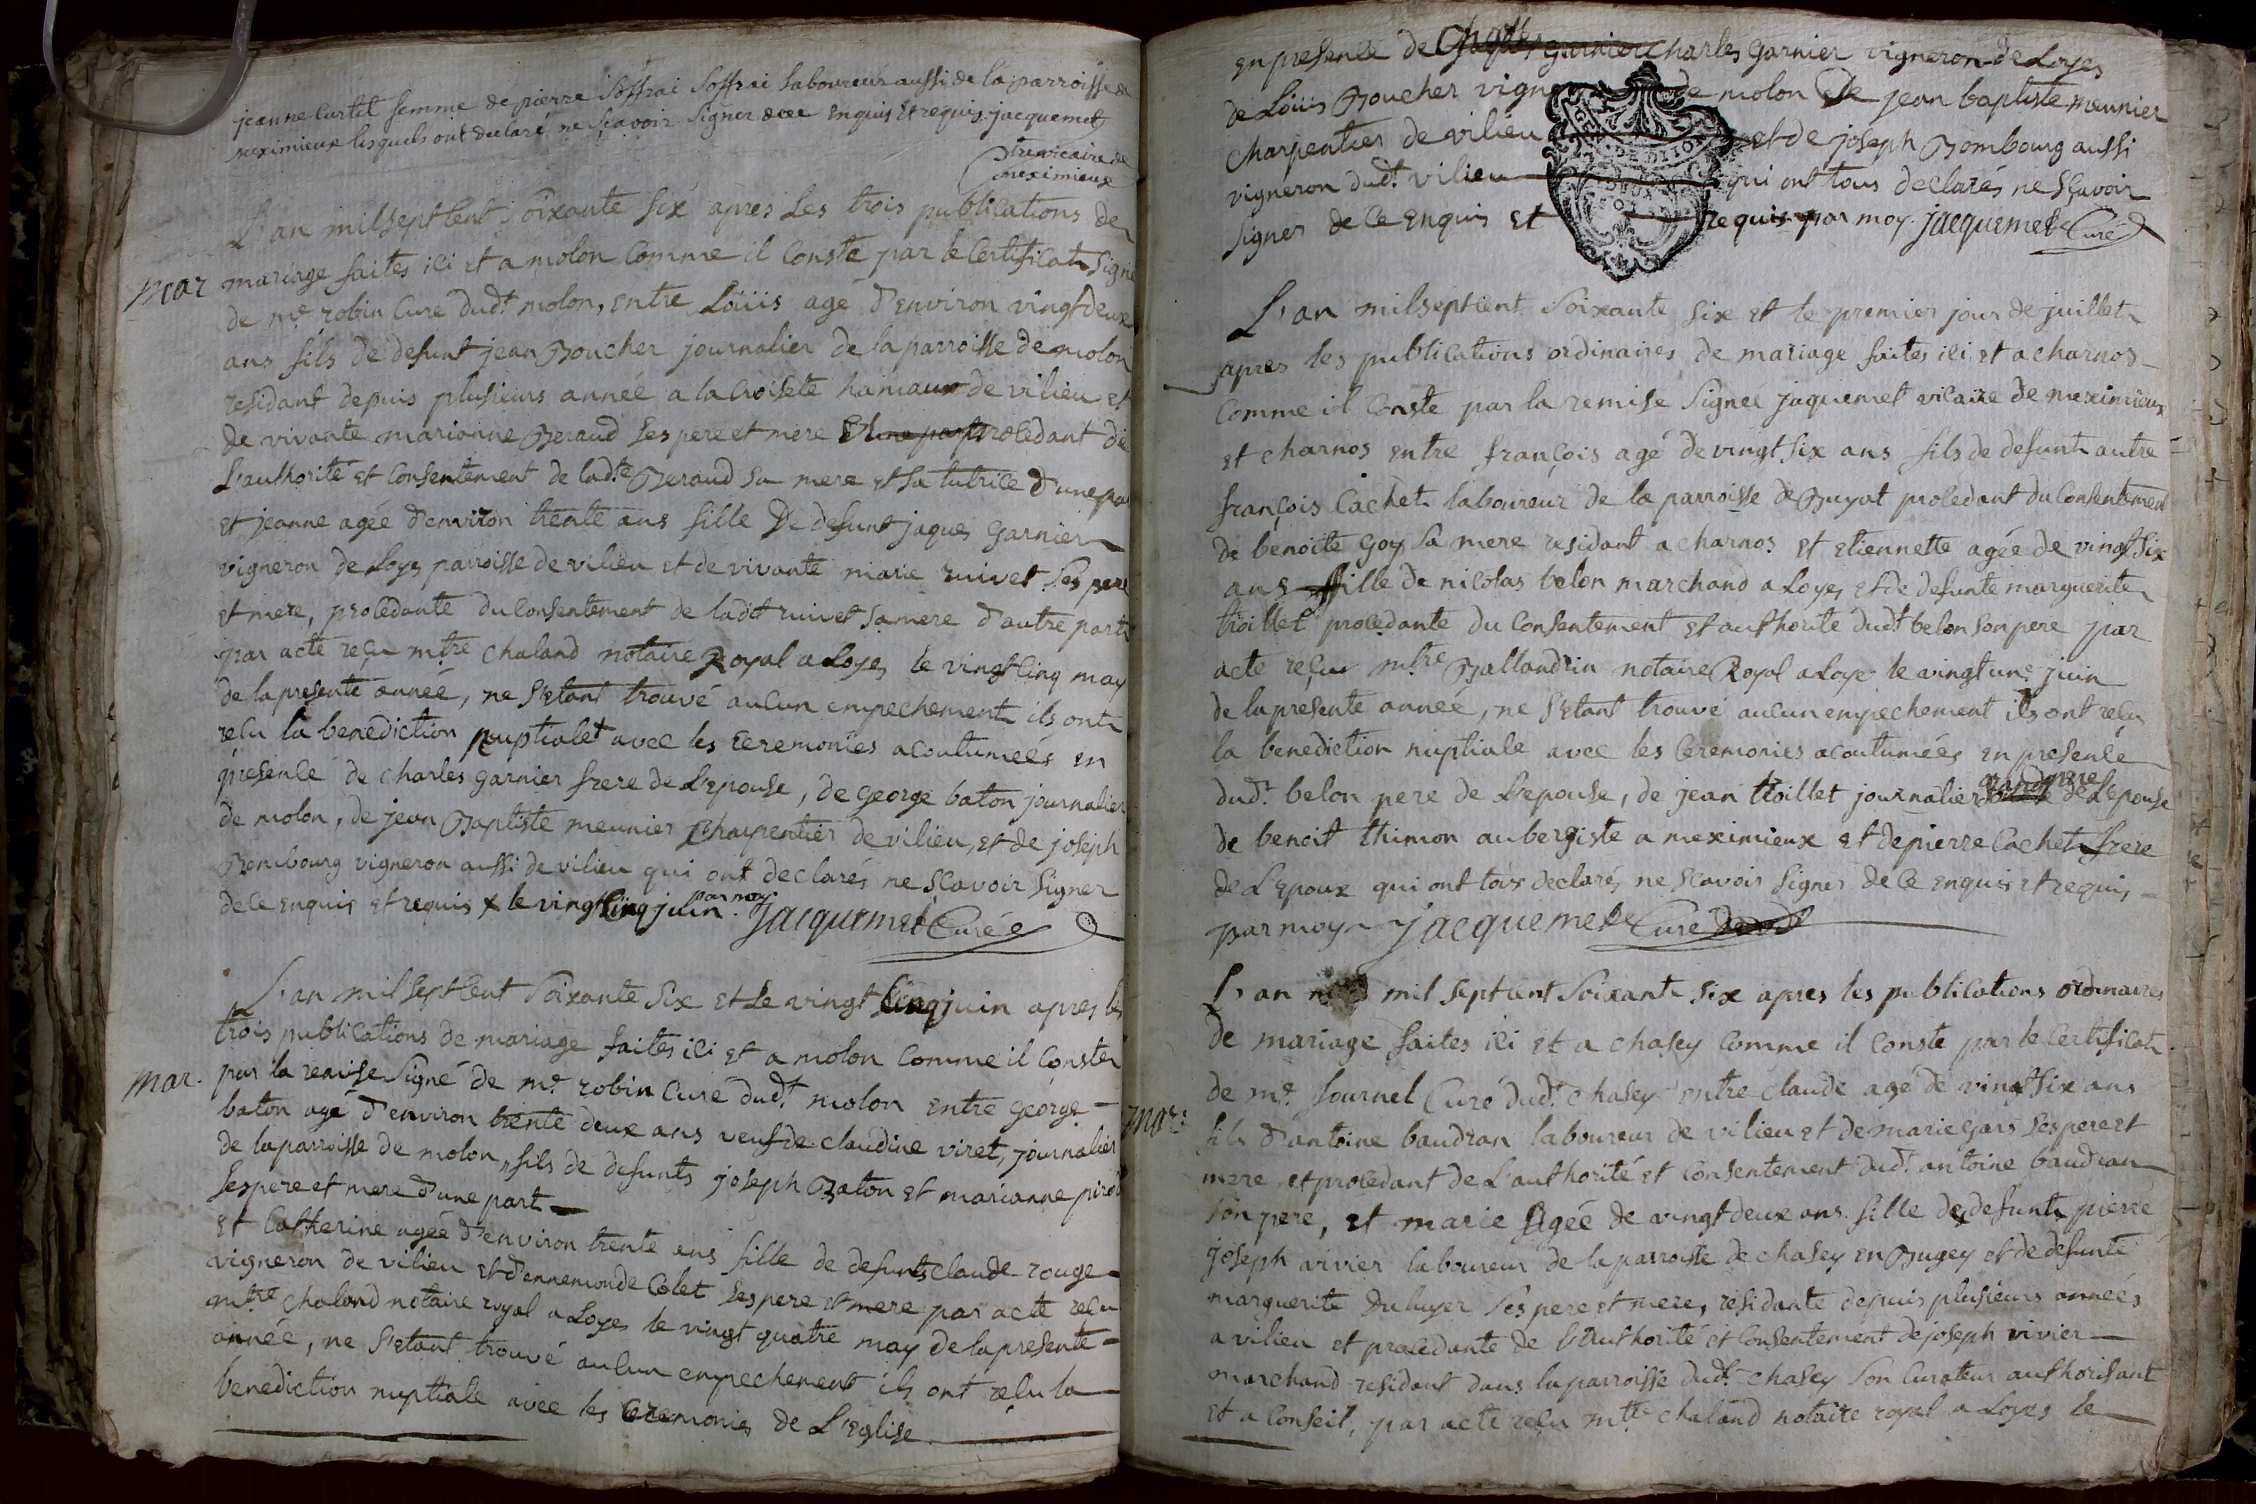 jeanne Curtil femme de pierre Soffrai Soffrai laboureur aussi de la parroisse de
meximieux lesquels ont declaré ne sçavoir signer de ce enquis et requis jacquemet
vicaire de
meximieux
L'an mil sept Cent soixante six apres les trois publications de
Mar mariage faites ici et a molon Comme il Conste par le Certificat signé
de mr. robin Curé dudt. molon, entre Loüis agé d'environ vingt deux
ans fils de defunt jean Boucher journalier de la parroisse de molon
residant depuis plusieurs année a la Croisete hamaux de vilieu et
de vivante marianne Beraud ses pere et mere procedant de
L'authorité et Consentement de ladte. Beraud sa mere et sa tutrice d'une part
et jeanne agée d'environ trente ans fille De defunt jaques Garnier
vigneron de Loyes parroisse de vilieu et de vivante marie ruivet ses pere
et mere, procedante du Consentement de ladt ruivet sa mere d'autre part
par acte reçu mtre chaland notaire Royal a Loyes le vingt Cinq may
de la presente année, ne s'etant trouvé aucun empechement ils ont
reçu la benediction nuptiale avec les Ceremonies acoutumeés en
presence de charles garnier frere de L'epouse, de george baton journalier
de molon, de jean Baptiste meunier Charpentier de vilieu, et de joseph
Bombourg vigneron aussi de vilieu qui ont declarés ne sçavoir signer
de Ce enquis et requis par moy le vingt Cinq juin. jacquemet Curé
L'an mil sept Cent soixante six et Le vingt Cinq juin apres les
trois publications de mariage faites ici et a molon Comme il Conste
Mar. par la remise signé de mr. robin Curé dudt. molon entre george
baton agé d'environ trente deux ans veuf de claudine viret, journalier
de la parroisse de molon, fils de defunts joseph Baton et marianne
ses pere et mere d'une part
et Catherine agée d'environ trente ans fille de defunts claude rouge
vigneron de vilieu et d'ennemonde Colet ses pere et mere par acte reçu
mtre chaland notaire royal a Loyes le vingt quatre may de la presente
année, ne s'etant trouvé aucun empechement ils ont reçu la
benediction nuptiale avec les Ceremonies de L'Eglise
en presence de Charles garnier vigneron de Loyes
de Loüis Boucher de molon de jean baptiste meunier
Charpentier de vilieu et de joseph Bombourg aussi
vigneron dudt. vilieu qui ont tous declarés ne sçavoir
signer de Ce enquis et requis par moy. jacquemet Curé
L'an mil sept cent soixante six et le premier jour de juillet
apres les publications ordinaires de mariage faites ici et a charnos
Comme il Conste par la remise signeé jaquemet vicaire de meximieux
et charnos entre françois agé de vingt six ans fils de defunt autre
françois Cachet laboureur de la parroisse de procedant du Consentement
de benoite Goy sa mere residant a charnos et etiennette agée de vingt six
ans fille de nicolas belon marchand a Loyes et de defunte marguerite
troillet procedante du Consentement et authorité dudt belon son pere par
acte reçu mtre Ballandrin notaire Royal a Loye le vingt un juin
de la presente année, ne s'etant trouvé aucun empechement ils ont reçu
la benediction nuptiale avec les Ceremonies acoutumées en presence
dudt. belon pere de L'epouse, de jean troillet journalier grand pere de L'epouse
de benoit thimon aubergiste a meximieux et de pierre Cachet frere
de L'Epoux qui ont tous declarés ne sçavoir signer de Ce enquis et requis
par moy jacquemet Curé
L'an mil sept cent soixante six apres les publications ordinaires
de mariage faites ici et a chasey Comme il Conste par le Certificat
de mr. Curé dudt. chasey entre claude agé de vingt six ans
Mar: fils d'antoine baudran laboureur de vilieu et de marie gars ses pere et
mere, et procedant de L'authorité et Consentement dudt. antoine baudran
son pere, et marie Agée de vingt deux ans fille de defunt pierre
joseph vivier laboureur de la parroisse de chasey en Bugey et de defunte
marguerite ses pere et mere, residante depuis plusieurs années
a vilieu et procedante de L'authorité et Consentement de joseph vivier
marchand residant dans la parroisse dudt. chasey son Curateur authorisant
et a Conseil, par acte reçu mtre chaland notaire royal a Loyes le